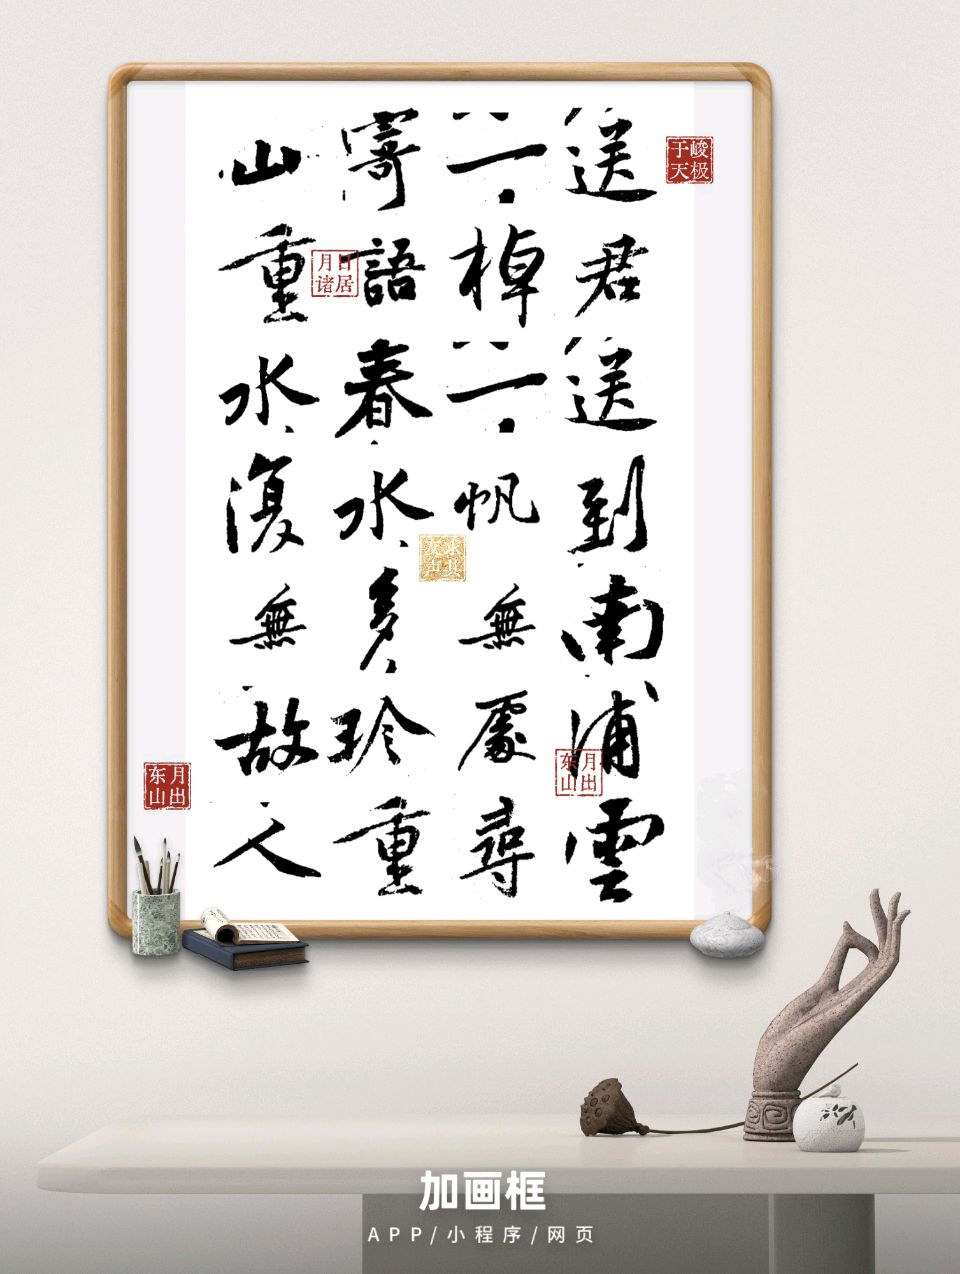 送君送到南浦雲
一棹一帆無處尋
寄語春水多珍重
山重水復無故人
峻极于天
日居月诸
求其友声
月出东山
月出东山
加画框
APP/小程序/网页